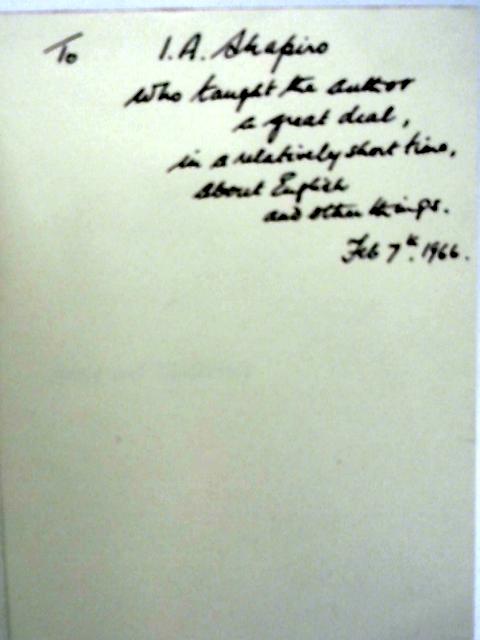 To I.A. Shapiro
who taught the author
a great deal,
in a relatively short time,
about English
and other things.
Feb 7th. 1966.